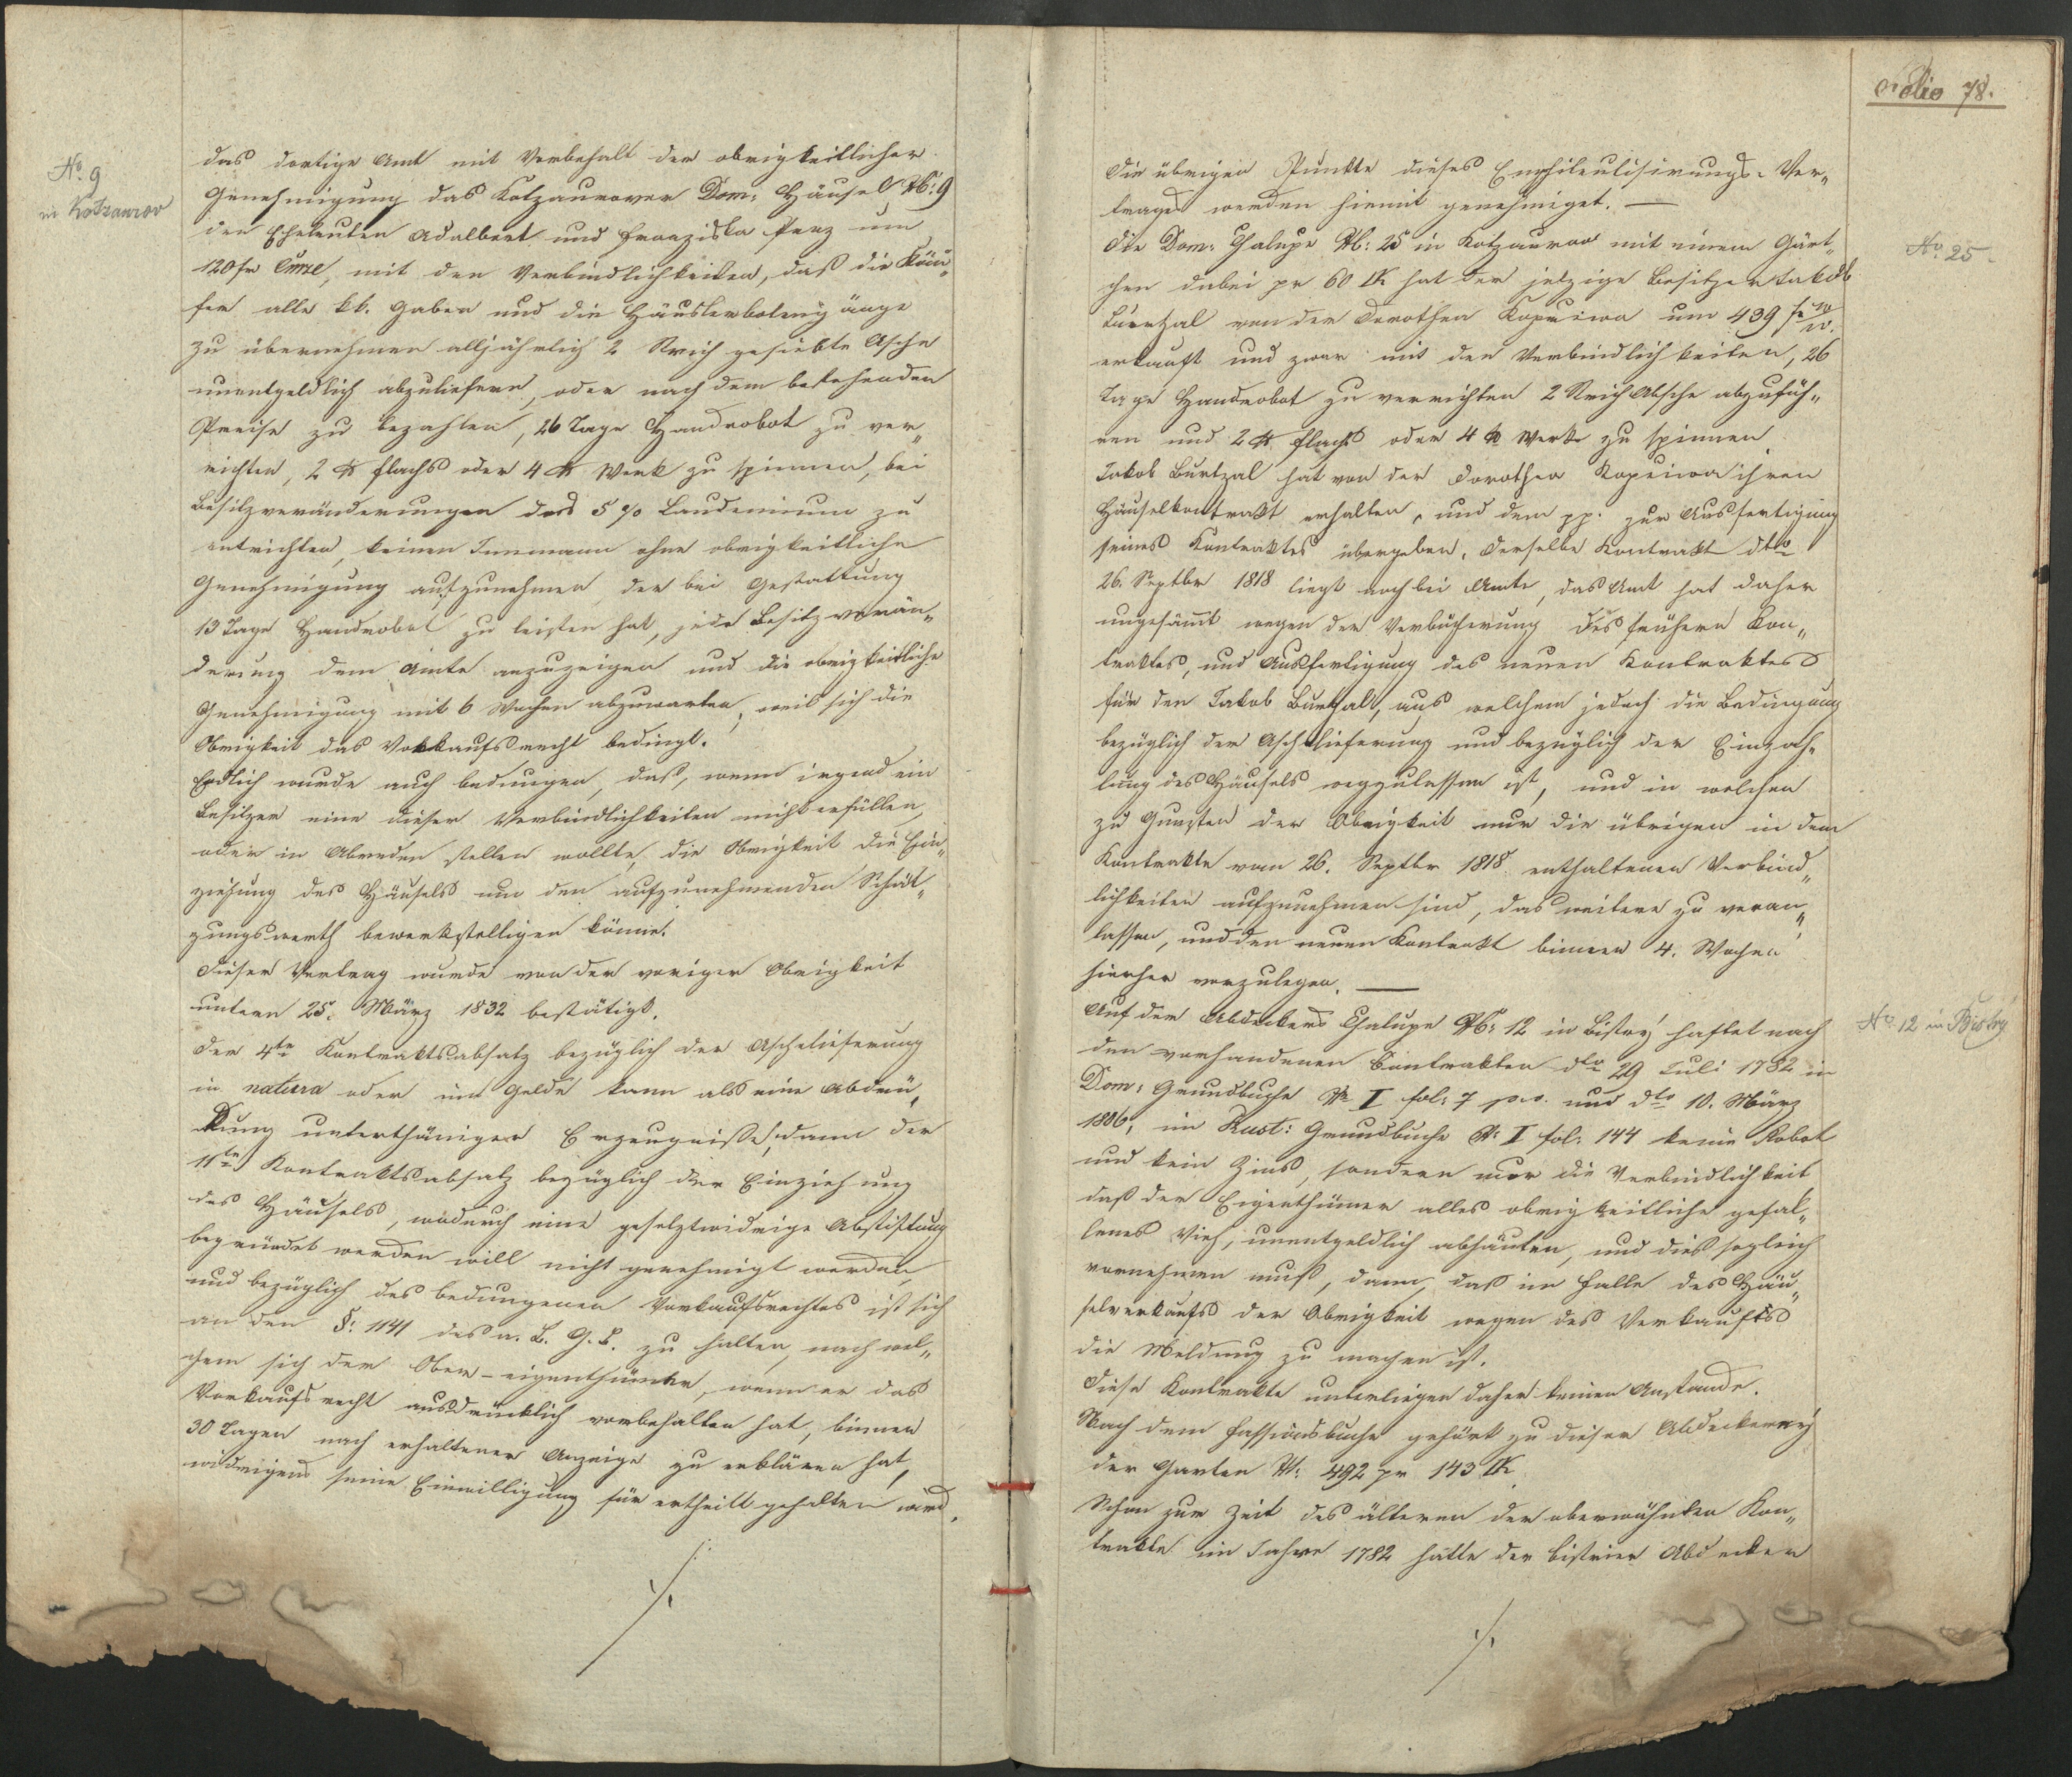 No. 9
in Kotzaurov
das dortige Amt mit Vorbehalt der obrigkeitlicher
Genehmigung das Kotzaurover Dom: Häusel N: 9
den Eheleuten Adalbert und Franziska Penz um
120 fr Cmze, mit den Verbindlichkeiten, daß die Käu„
fer alle kk. Gaben und die Häuslerbotengänge
zu übernehmen alljährlich 2 Strich gesiebte Asche
unentgeldlich abzuliefern, oder nach dem bestehenden
Preise zu bezahlen, 26 Tage Handrobot zu ver„
richten, 2 ℔ Flachs oder 4 ℔ Werk zu spinnen, bei
Besitzveränderungen das 5 % Laudemium zu
entrichten, keinen Innmann ohne obrigkeitliche
Genehmigung aufzunehmen, der bei Gestattung
13 Tage Handrobot zu leisten hat, jede Besitzverän„
derung dem Amte anzuzeigen und die obrigkeitliche
Genehmigung mit 6 Wochen abzuwarten, weil sich die
Obrigkeit das Vorkaufsrecht bedingt.
Endlich wurde auch bedungen, daß, wenn irgend ein
Besitzer eine dieser Verbindlichkeiten nicht erfüllen,
oder in Abreden stellen wollte, die Obrigkeit die Ein„
ziehung des Häusels um den aufzunehmenden Schät„
zungswerth bewerkstelligen könne.
Dieser Vertrag wurde von der voriger Obrigkeit
untern 25. März 1832 bestätigt.
Der 4te Kontraktsabsatz bezüglich der Aschelieferung
in natura oder im Gelde kann als eine Abdrü„
ckung unterthäniger Erzeugniße, dann der
11te Kontraktsabsatz bezüglich der Einziehung
des Häusels, wodurch eine gesetztwidrige Abstiftung
begründet werden will nicht genehmigt werden,
und bezüglich des bedungenen Vorkaufsrechtes ist sich
an den §: 1141 des a. B. G. B. zu halten, nach wel„
chem sich der Ober-eigenthümer, wenn er das
Vorkaufsrecht ausdrücklich vorbehalten hat, binnen
30 Tagen nach erhaltener Anzeige zu erklären hat,
widrigens seine Einwilligung für ertheilt gehalten wird.
./.
Folio 78.
Die übrigen Punkte dieses Emphiteutisirungs-Ver„
trages werden hiemit genehmiget. —
No. 25
Die Dom: Chalupe N: 25 in Kotzaurov mit einem Gärt„
chen dabei pr 60 □K hat der jetzige Besitzer Jakob
Burtzal von der Dorothea Kopeiwa um 439 fr
erkauft und zwar mit den Verbindlichkeiten, 26
Tage Handrobot zu verrichten 2 Strich Asche abzufüh„
ren und 2 ℔ Flachs oder 4 ℔ Werk zu spinnen.
Jakob Burtzal hat von der Dorothea Kopeiwa ihren
Häuselkontrakt erhalten, und dem pp. zur Ausfertigung
seines Kontraktes übergeben. Derselbe Kontrakt dto
26. Septbr 1818 liegt noch bei Amte, das Amt hat daher
ungesäumt wegen der Verbücherung des frühern Kon„
traktes, und Ausfertigung des neuen Kontraktes
für den Jakob Burtzal, aus welchem jedoch die Bedingung
bezüglich der Aschlieferung und bezüglich der Einzah„
lung des Häusels wegzulassen ist, und in welchen
zu Gunsten der Obrigkeit nur die übrigen in dem
Kontrakte vom 26. Septbr 1818 enthaltenen Verbind„
lichkeiten aufzunehmen sind, das weitere zu veran„
lassen, und den neuen Kontrakt binnen 4. Wochen
hierher vorzulegen. —
No. 12 in Bistry
Auf der Abdeckers Chalupe N: 12 in Bistry haftet nach
den vorhandenen Contrakten dto 29 Juli 1782 in
Dom: Grundbuche N I fol: 7 p. v. und dto 10. März
1806, im Rust: Grundbuche N: I fol: 144 keine Robot
und kein Zins, sondern nur die Verbindlichkeit
daß der Eigenthümer alles obrigkeitliche gefal„
lenes Vieh, unentgeldlich abhäuten, und dies sogleich
vornehmen muß, dann, daß im Falle des Häu„
selverkaufs der Obrigkeit wegen des Verkaufes
die Meldung zu machen ist.
Diese Kontrakte unterliegen daher keinen Anstande.
Nach dem Fassionsbuche gehört zu dieser Abdeckerey
der Garten N: 492 pr 143 □K
Schon zur Zeit des älteren der oberwähnten Kon„
trakte im Jahre 1782 hatte der bistrier Abdecker
./.